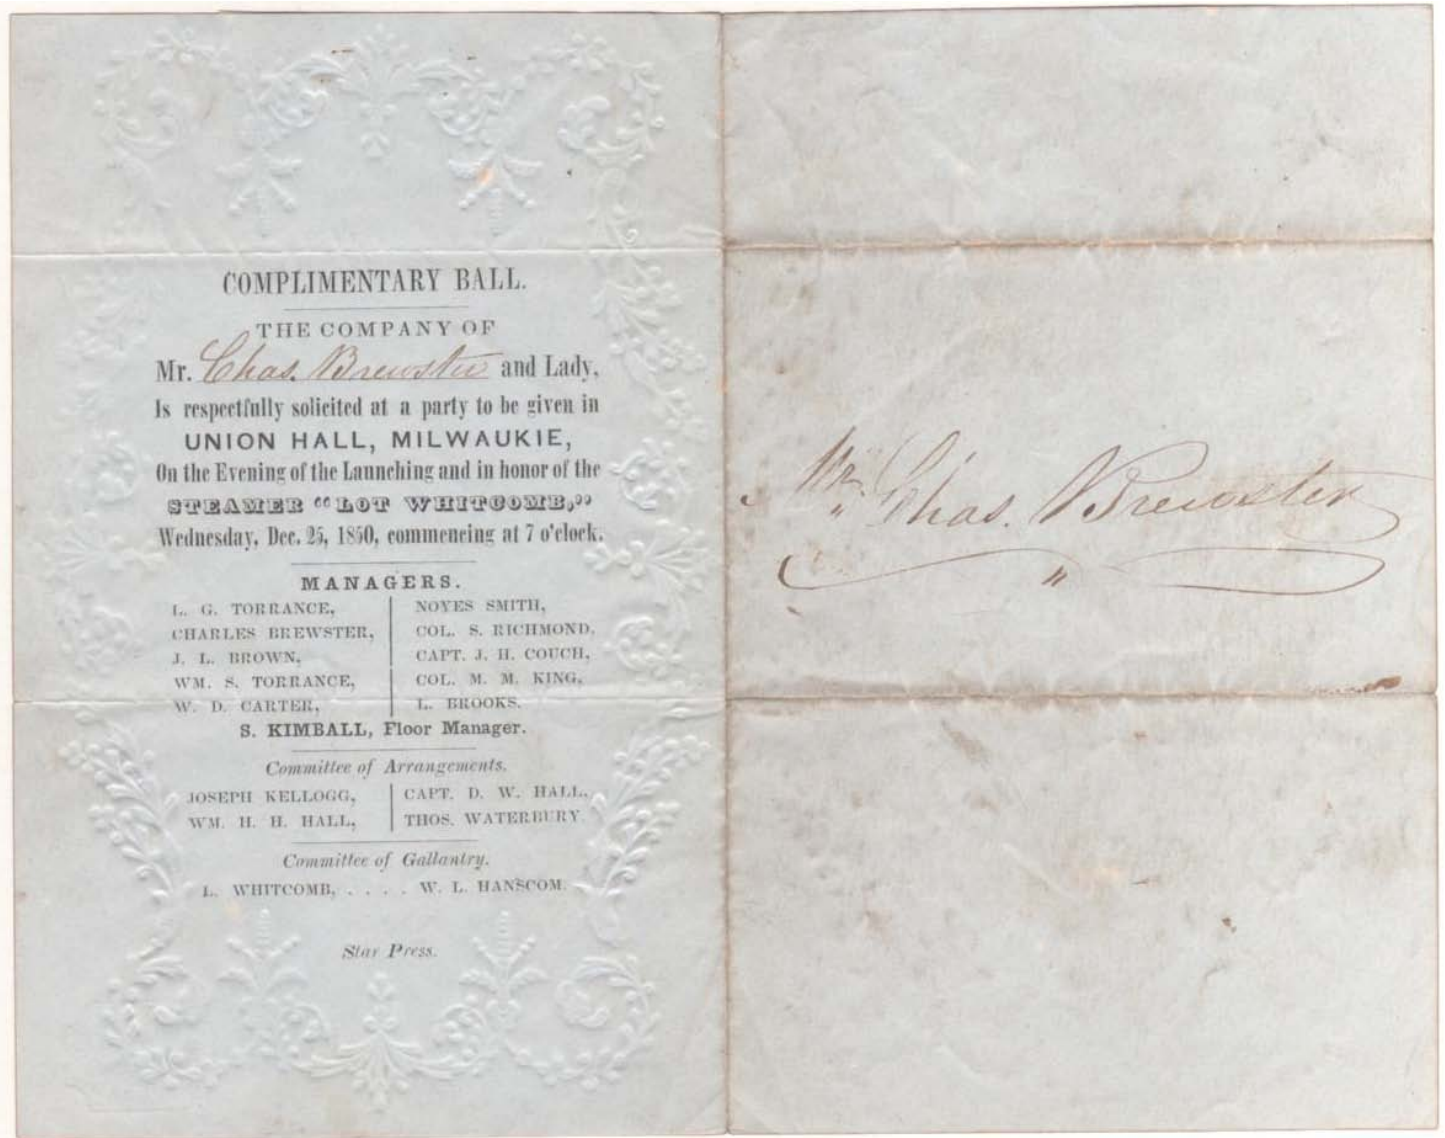 COMPLIMENTARY BALL.
THE COMPANY OF
Mr. Chas. Brewster and Lady,
Is respectfully solicited at a party to be given in
UNION HALL, MILWAUKIE,
On the Evening of the Launching and in honor of the
STEAMER “LOT WHITCOMB,”
Wednesday, Dec. 25, 1850, commencing at 7 o'clock.
MANAGERS.
L. G. TORRANCE,
CHARLES BREWSTER,
J. L. BROWN,
WM. S. TORRANCE,
W. D. CARTER,
NOYES SMITH,
COL. S. RICHMOND,
CAPT. J. H. COUCH,
COL. M. M. KING,
L. BROOKS.
S. KIMBALL, Floor Manager.
Committee of Arrangements.
JOSEPH KELLOGG,
WM. H. H. HALL,
CAPT. D. W. HALL,
THOS. WATERBURY.
Committee of Gallantry.
L. WHITCOMB, . . . . W. L. HANSCOM.
Star Press.
Mr. Chas. Brewster